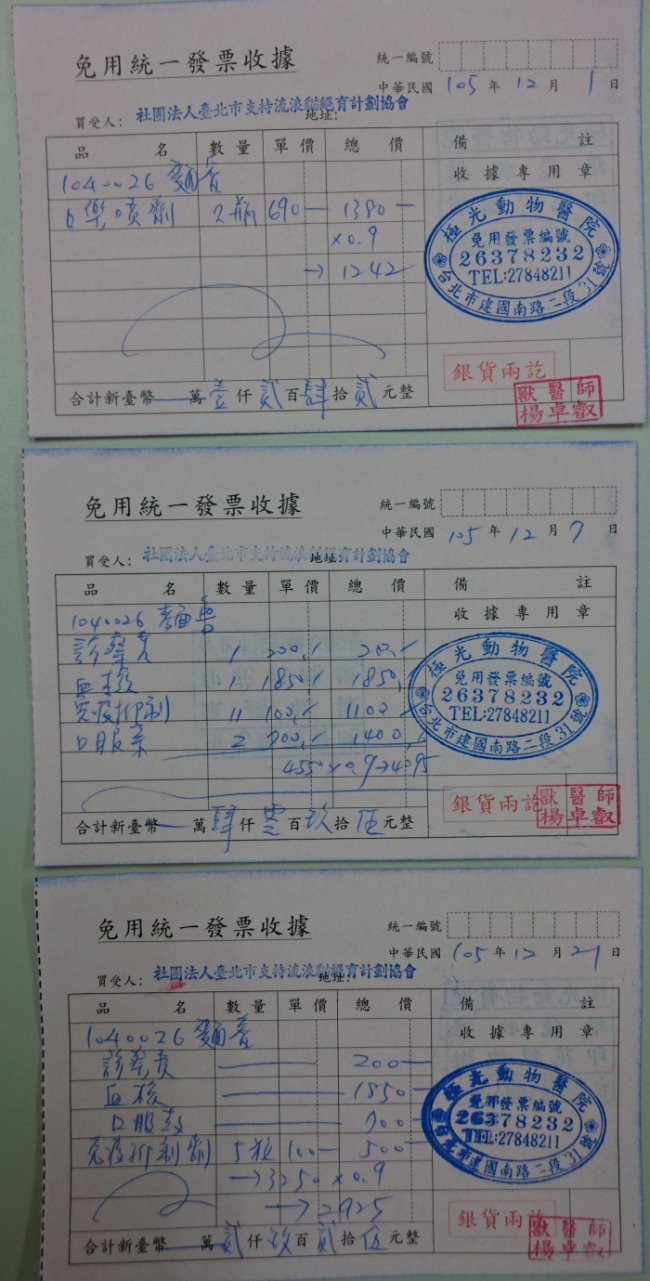 免用統一發票收據
統一編號
中華民國 105 年 12 月 1 日
買受人: 社團法人臺北市支持流浪貓絕育計劃協會 地址:
品 名 數量 單價 總 價 備 註
1040026 收據專用章
口樂噴劑 2瓶 690 1380
x0.9
→ 1242
極光動物醫院
免用發票編號
26378232
TEL:27848211
台北市建國南路二段31號
銀貨兩訖
獸醫師
楊卓叡
合計新臺幣 萬壹仟貳百肆拾貳元整
免用統一發票收據
統一編號
中華民國 105 年 12 月 7 日
買受人: 社團法人臺北市支持流浪貓絕育計劃協會 地址:
品 名 數量 單價 總 價 備 註
1040026 收據專用章
診察費 1 200 200
血檢 1 1850 1850
免疫抑制劑 11 100 1100
口服藥 2 700 1400
4550 x 0.9 → 4095
極光動物醫院
免用發票編號
26378232
TEL:27848211
台北市建國南路二段31號
銀貨兩訖
獸醫師
楊卓叡
合計新臺幣 萬肆仟零百玖拾伍元整
免用統一發票收據
統一編號
中華民國 105 年 12 月 21 日
買受人: 社團法人臺北市支持流浪貓絕育計劃協會 地址:
品 名 數量 單價 總 價 備 註
1040026 收據專用章
診察費 200
血檢 1850
口服 700
免疫抑制劑 5粒 100 500
→ 3250 x 0.9
→ 2925
極光動物醫院
免用發票編號
26378232
TEL:27848211
台北市建國南路二段31號
銀貨兩訖
獸醫師
楊卓叡
合計新臺幣 萬貳仟玖百貳拾伍元整